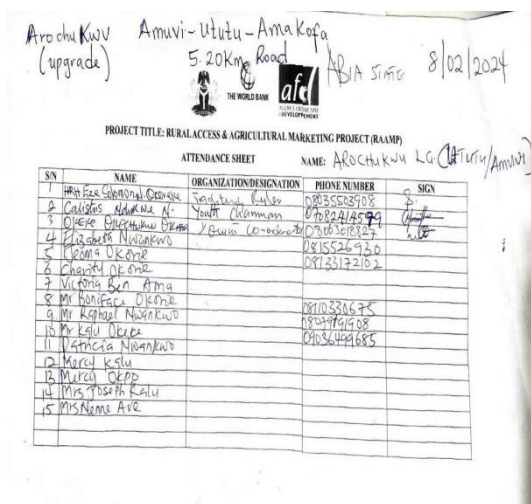 Arochukwu Amuvi-Ututu-Amakofa
(upgrade) 5.20Km Road ABIA STATE 8/02/2024
THE WORLD BANK
afd
AGENCE FRANÇAISE
DE DÉVELOPPEMENT
PROJECT TITLE: RURAL ACCESS & AGRICULTURAL MARKETING PROJECT (RAAMP)
ATTENDANCE SHEET NAME: AROCHUKWU LG (UTUTU/Amuvi)
S/N NAME ORGANIZATION/DESIGNATION PHONE NUMBER SIGN
1 HRH Eze Traditional Ruler 08035503908
2 Calistus N. Youth Chairman
3 Okeke Youth Co-odinator 08063018827
4 Elizabeth Nwankwo 0815526930
5 Ijeoma Okorie 08133172102
6 Charity Okorie
7 Victoria Ben Ama
8 Mr Boniface Okorie 08110330675
9 Mr Raphael Nwankwo
10 Mr Kalu Okeke 09036499685
11 Patricia Nwankwo
12 Mercy Kalu
13 Mercy
14 Mrs Joseph Kalu
15 Mrs Nenne